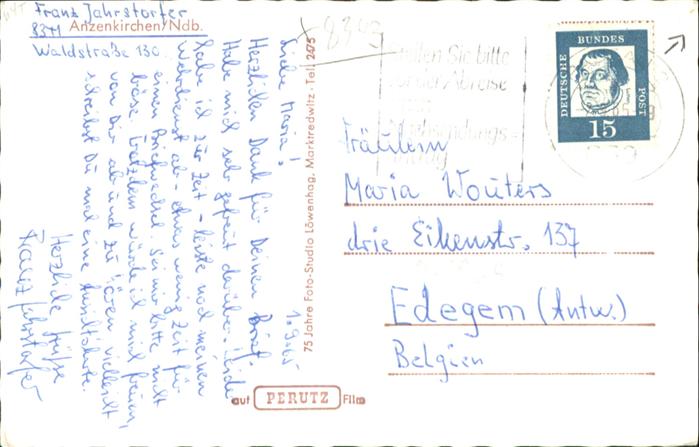 Franz Jahrstorfer
8341 Anzenkirchen/Ndb.
Waldstraße 130
8343
1.9.65
Liebe Maria!
Herzlichen Dank für Deinen Brief.
Habe mich sehr gefreut darüber. Leider
habe ich zur Zeit - leiste noch meinen
Wehrdienst ab - etwas wenig Zeit für
einen Briefwechsel. Sei mir bitte nicht
böse. Trotzdem würde ich mich freuen,
von Dir ab und zu hören vielleicht
schreibst Du mal eine Ansichtskarte.
Herzliche Grüße
Franz Jahrstorfer
75 Jahre Foto-Studio Löwenhag, Marktredwitz · Tel. 2475
auf PERUTZ Film
stellen Sie bitte
vor der Abreise
Nachsendungs=
antrag
DEUTSCHE BUNDES POST
15
Fräulein
Maria Wouters
drie Eikenstr. 137
Edegem (Antw.)
Belgien